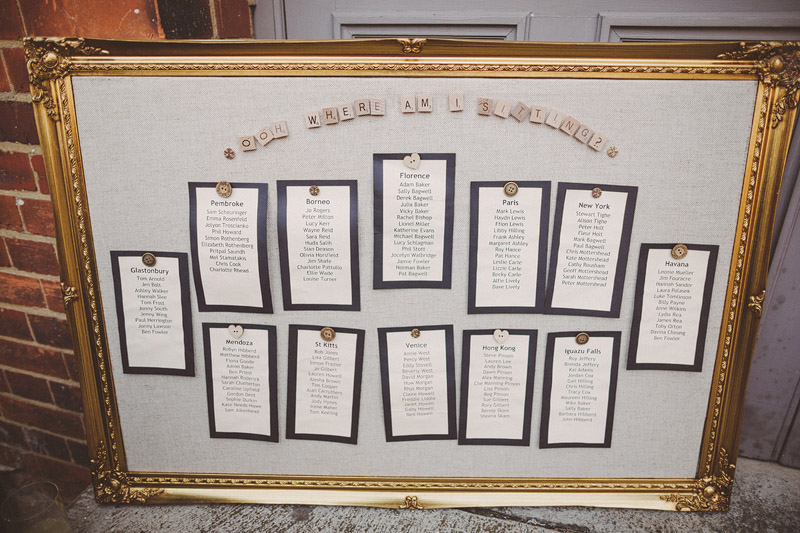 OOH, WHERE AM I SITTING?
Pembroke
Sam Scheuringer
Emma Rosenfeld
Jolyon Troscianko
Phil Howard
Simon Rothenberg
Elizabeth Rothenberg
Pritpal Saundh
Mel Stamatakis
Chris Cook
Charlotte Rhead
Borneo
Jo Rogers
Peter Milton
Lucy Kerr
Wayne Reid
Sara Reid
Huda Salih
Sian Deason
Olivia Horsfield
Jim Shafe
Charlotte Pattullo
Ellie Wade
Louise Turner
Florence
Adam Baker
Sally Bagwell
Derek Bagwell
Julia Baker
Vicky Baker
Rachel Bishop
Lionel Miller
Katherine Evans
Michael Bagwell
Lucy Schlagman
Phil Stott
Jocelyn Walbridge
Jamie Fowler
Norman Baker
Pat Bagwell
Paris
Mark Lewis
Haydn Lewis
Ellen Lewis
Libby Hilling
Frank Ashley
Margaret Ashley
Roy Hance
Pat Hance
Leslie Carle
Lizzie Carle
Becky Carle
Alfie Lively
Dave Lively
New York
Stewart Tighe
Alison Tighe
Peter Holt
Fleur Holt
Mark Bagwell
Paul Bagwell
Chris Mottershead
Kate Mottershead
Cathy Poulsam
Geoff Mottershead
Sarah Mottershead
Peter Mottershead
Glastonbury
Tom Arnold
Jen Bolt
Ashley Walker
Hannah Slee
Tom Frost
Jonny Smith
Jenny Wing
Paul Herrington
Jonny Lawson
Ben Fowler
Havana
Leonie Mueller
Jim Fouracre
Hannah Sander
Laura Polasek
Luke Tomlinson
Billy Payne
Anne Wilkens
Lydia Rea
James Rea
Tolly Orton
Davina Cheung
Ben Fowell
Mendoza
Robyn Hibberd
Matthew Hibberd
Fiona Goode
Adrian Baker
Ben Priest
Hannah Roderick
Sarah Chatterton
Caroline Upfield
Gordon Dent
Sophie Durkin
Kate Heads Howe
Sam Aikenhead
St Kitts
Bob Jones
Liza Gilbert
Simon Frazier
Jo Gilbert
Lauren Howard
Aiesha Brown
Tim Slinger
Alan Carruthers
Andy Martin
Jody Hynes
Irene Maher
Tom Keeling
Venice
Anne West
Percy West
Eddy Stovell
Beverly West
David Morgan
Huw Morgan
Rhys Morgan
Claire Howell
Freddie Liddle
Derek Howell
Gaby Howell
Neil Howell
Hong Kong
Steve Pinson
Lauren Lee
Andy Brown
Dawn Pinson
Alex Manning
Che Manning Pinson
Lisa Pinson
Reg Pinson
Sue Gilbert
Rory Gilbert
Bernie Skam
Shawna Skam
Iguazu Falls
Roy Jeffery
Brenda Jeffery
Kai Adams
Jordan Cox
Gail Hilling
Chris Hilling
Tracy Cox
Maureen Hilling
Mike Baker
Sally Baker
Barbara Hibberd
John Hibberd